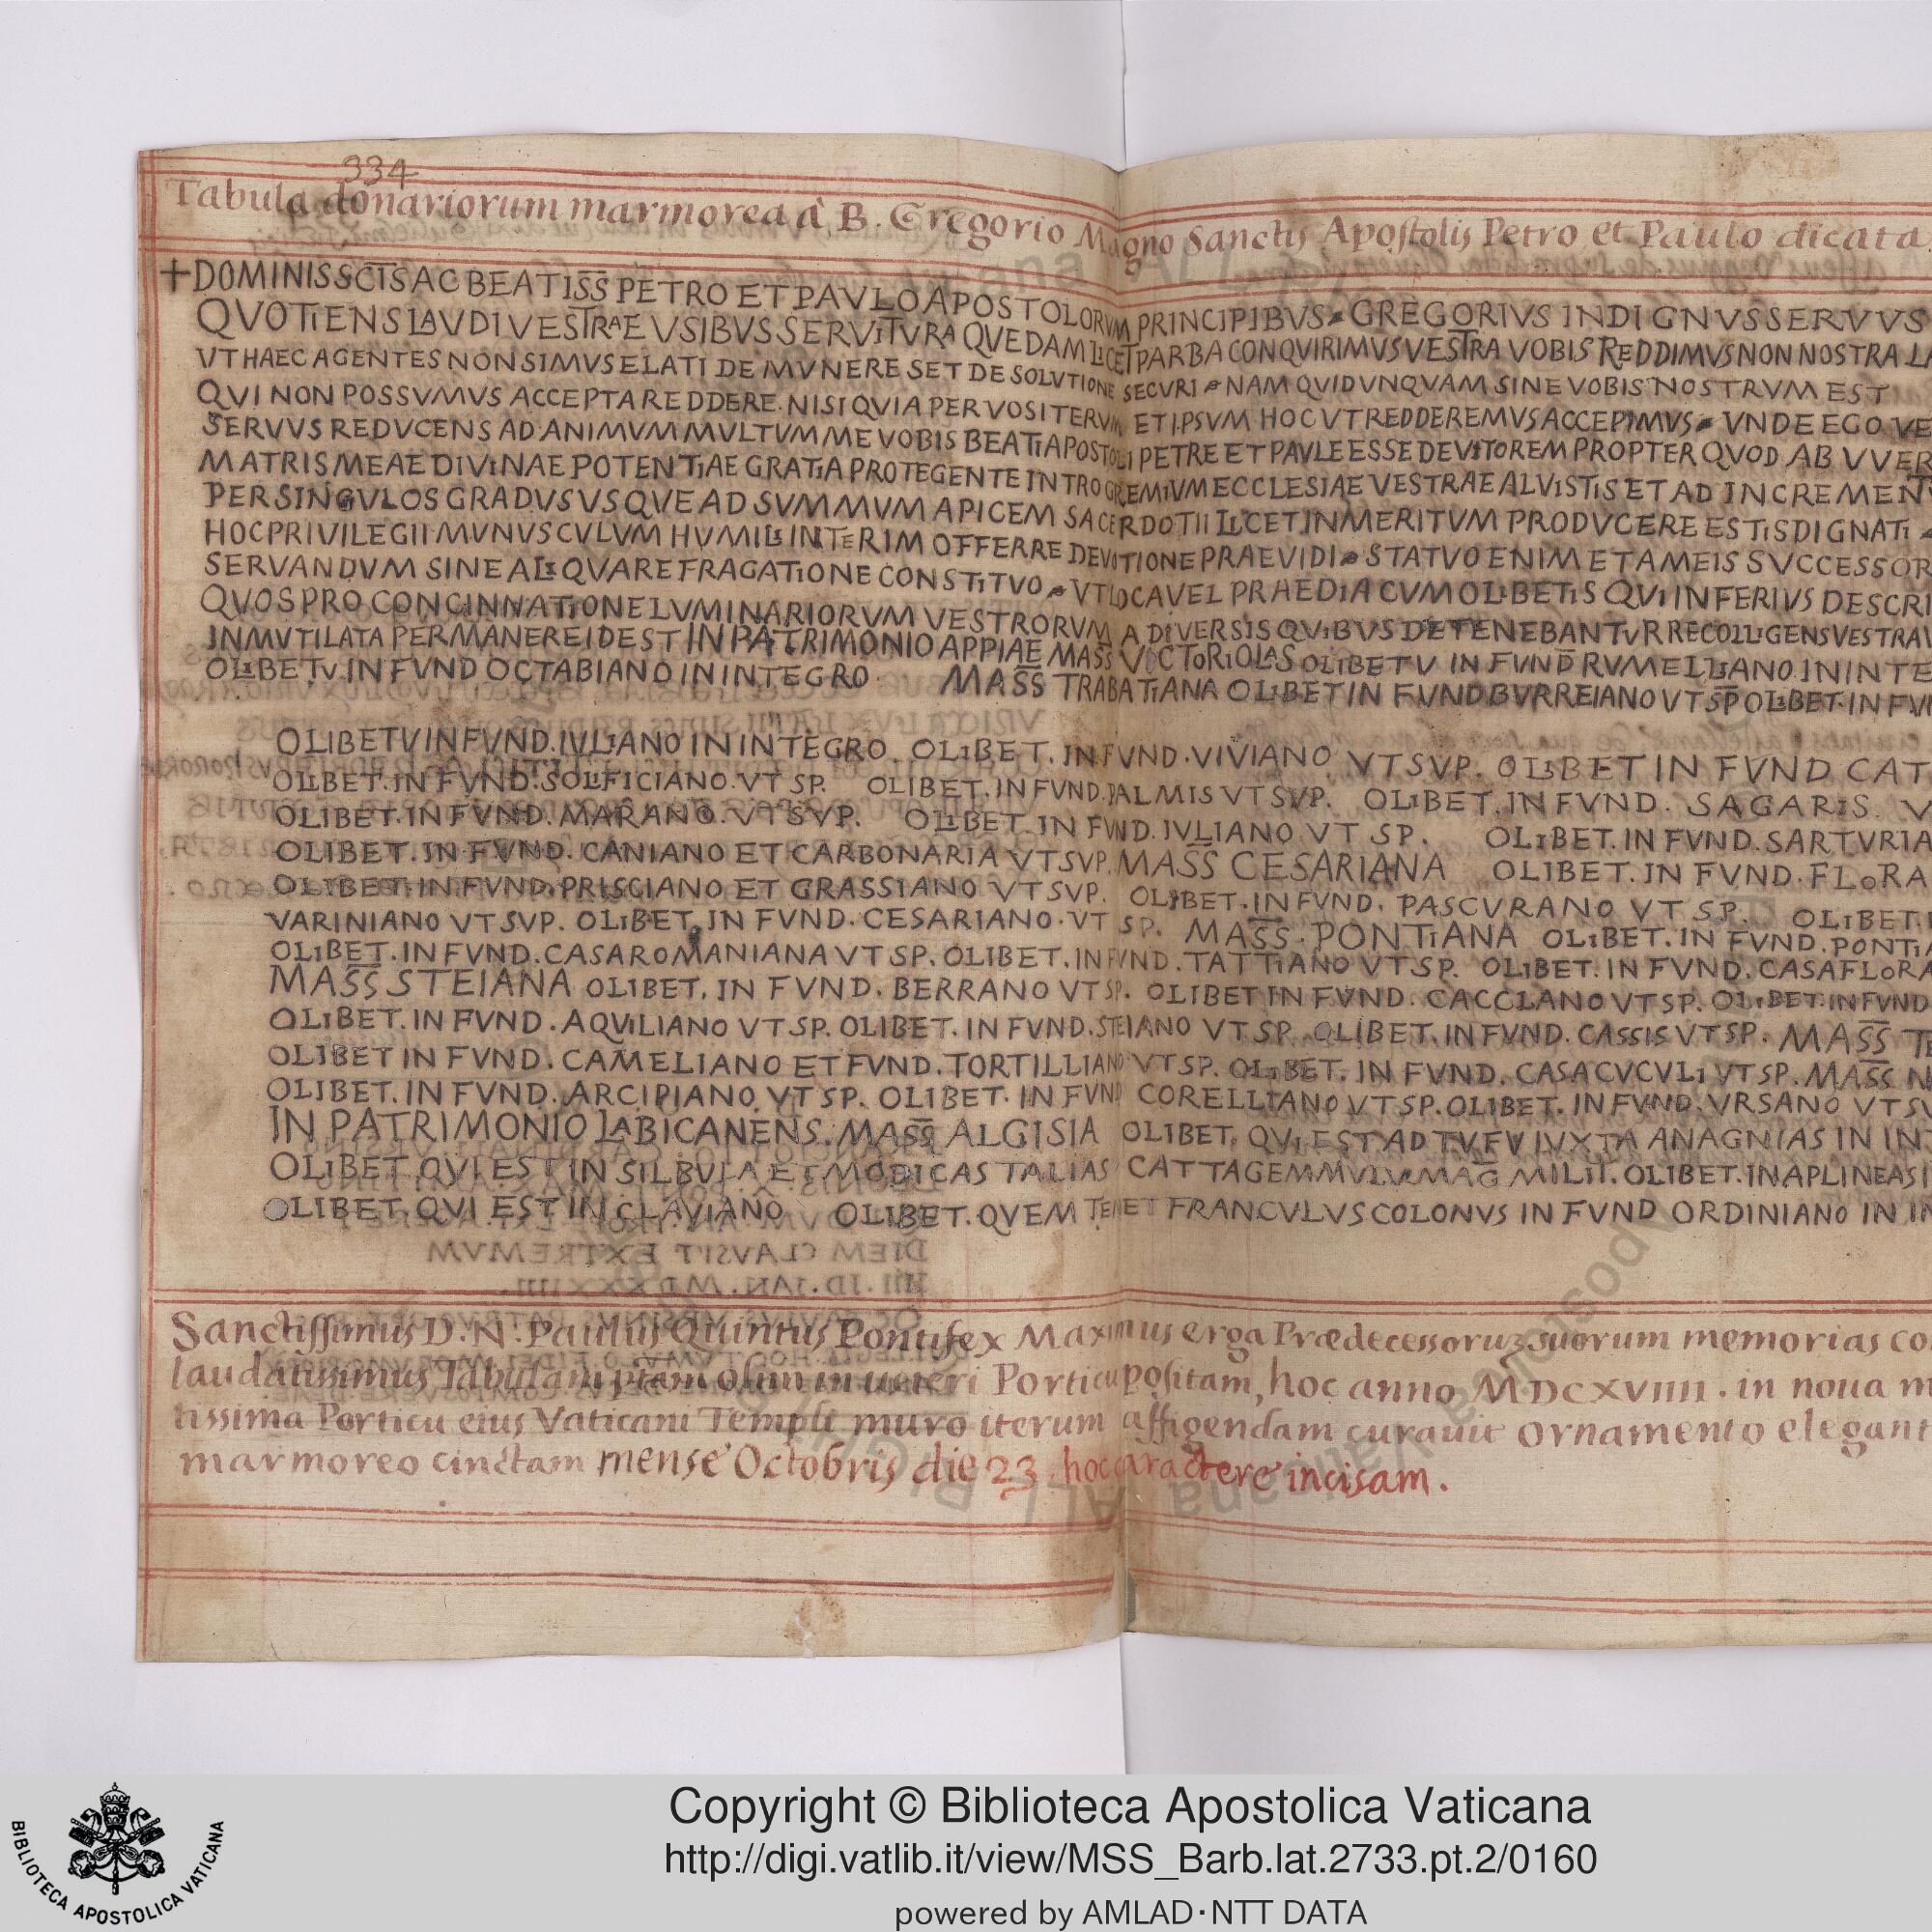 334
Tabula donariorum marmorea à B. Gregorio Magno Sanctis Apostolis Petro et Paulo dicata.
+DOMINIS SCTS AC BEATISS PETRO ET PAVLO APOSTOLORVM PRINCIPIBVS GREGORIVS INDIGNVS SERVVS
QVOTIENS LAVDI VESTRAE VSIBVS SERVITVRA QVEDAM LICET PARBA CONQVIRIMVS VESTRA VOBIS REDDIMVS NON NOSTRA LA
VT HAEC AGENTES NON SIMVS ELATI DE MVNERE SET DE SOLVTIONE SECVRI NAM QVID VNQVAM SINE VOBIS NOSTRVM EST
QVI NON POSSVMVS ACCEPTA REDDERE. NISI QVIA PER VOS ITERVM ET IPSVM HOC VT REDDEREMVS ACCEPIMVS VNDE EGO VE
SERVVS REDVCENS AD ANIMVM MVLTVM ME VOBIS BEATI APOSTOLI PETRE ET PAVLE ESSE DEVITOREM PROPTER QVOD AB VVER
MATRIS MEAE DIVINAE POTENTIAE GRATIA PROTEGENTE INTRO GREMIVM ECCLESIAE VESTRAE ALVISTIS ET AD INCREMENT
PER SINGVLOS GRADVS VSQVE AD SVMMVM APICEM SACERDOTII LICET INMERITVM PRODVCERE ESTIS DIGNATI
HOC PRIVILEGII MVNVSCVLVM HVMILI INTERIM OFFERRE DEVOTIONE PRAEVIDI STATVO ENIM ET A MEIS SVCCESSOR
SERVANDVM SINE ALIQVA REFRAGATIONE CONSTITVO VT LOCA VEL PRAEDIA CVM OLIBETIS QVI INFERIVS DESCRI
QVOS PRO CONCINNATIONE LVMINARIORVM VESTRORVM A DIVERSIS QVIBVS DETENEBANTVR RECOLLIGENS VESTRA
INMVTILATA PERMANERE ID EST IN PATRIMONIO APPIAE MASS VICTORIOLAS OLIBETV IN FVND RVMELLIANO. IN INTE
OLIBETV. IN FVND OCTABIANO IN INTEGRO. MASS TRABATIANA OLIBET IN FVND BVRREIANO VT SP OLIBET. IN FVN
OLIBETV IN FVND. IVLIANO IN INTEGRO. OLIBET. IN FVND. VIVIANO VT SVP. OLIBET IN FVND CAT
OLIBET. IN FVND. SOLFICIANO. VT SP. OLIBET. IN FVND. PALMIS VT SVP. OLIBET. IN FVND. SAGARIS. V
OLIBET. IN FVND. MARANO. VT SVP. OLIBET. IN FVND. IVLIANO VT SP. OLIBET. IN FVND. SARTVRIA
OLIBET. IN FVND. CANIANO ET CARBONARIA VT SVP. MASS CESARIANA OLIBET. IN FVND. FLORA
OLIBET. IN FVND. PRISCIANO ET GRASSIANO VT SVP. OLIBET. IN FVND. PASCVRANO VT SP. OLIBET.
VARINIANO VT SVP. OLIBET. IN FVND. CESARIANO. VT SP. MASS. PONTIANA OLIBET. IN FVND. PONTIA
OLIBET. IN FVND. CASAROMANIANA VT SP. OLIBET. IN FVND. TATTIANO VT SP. OLIBET. IN FVND. CASAFLORA
MASS STEIANA OLIBET. IN FVND. BERRANO VT SP. OLIBET IN FVND. CACCLANO VT SP. OLIBET. IN FVND
OLIBET. IN FVND. AQVILIANO VT SP. OLIBET. IN FVND. STEIANO VT SP. OLIBET. IN FVND. CASSIS VT SP. MASS TE
OLIBET IN FVND. CAMELIANO ET FVND. TORTILLIANO VT SP. OLIBET. IN FVND. CASACVCVLI VT SP. MASS N
OLIBET. IN FVND. ARCIPIANO. VT SP. OLIBET. IN FVND CORELLIANO VT SP. OLIBET. IN FVND. VRSANO VT SV
IN PATRIMONIO LABICANENS. MASS ALGISIA OLIBET. QVI EST AD TVFV IVXTA ANAGNIAS IN INT
OLIBET QVI EST IN SILBVLA ET MODICAS TALIAS CATTAGEMMVLV MAG MILIT. OLIBET. IN APLINEAS I
OLIBET. QVI EST IN CLAVIANO OLIBET. QVEM TENET FRANCVLVS COLONVS IN FVND ORDINIANO IN IN
Sanctissimus D. N. Paulus Quintus Pontifex Maximus erga Prædecessorum suorum memorias co
laudatissimus Tabulam piam olim in ueteri Porticu positam, hoc anno MDCXVIIII. in noua m
tissima Porticu eius Vaticani Templi muro iterum affigendam curauit ornamento elegant
marmoreo cinctam mense Octobris die 23 hoc caractere incisam.
Copyright © Biblioteca Apostolica Vaticana
http://digi.vatlib.it/view/MSS_Barb.lat.2733.pt.2/0160
powered by AMLAD·NTT DATA
BIBLIOTECA APOSTOLICA VATICANA